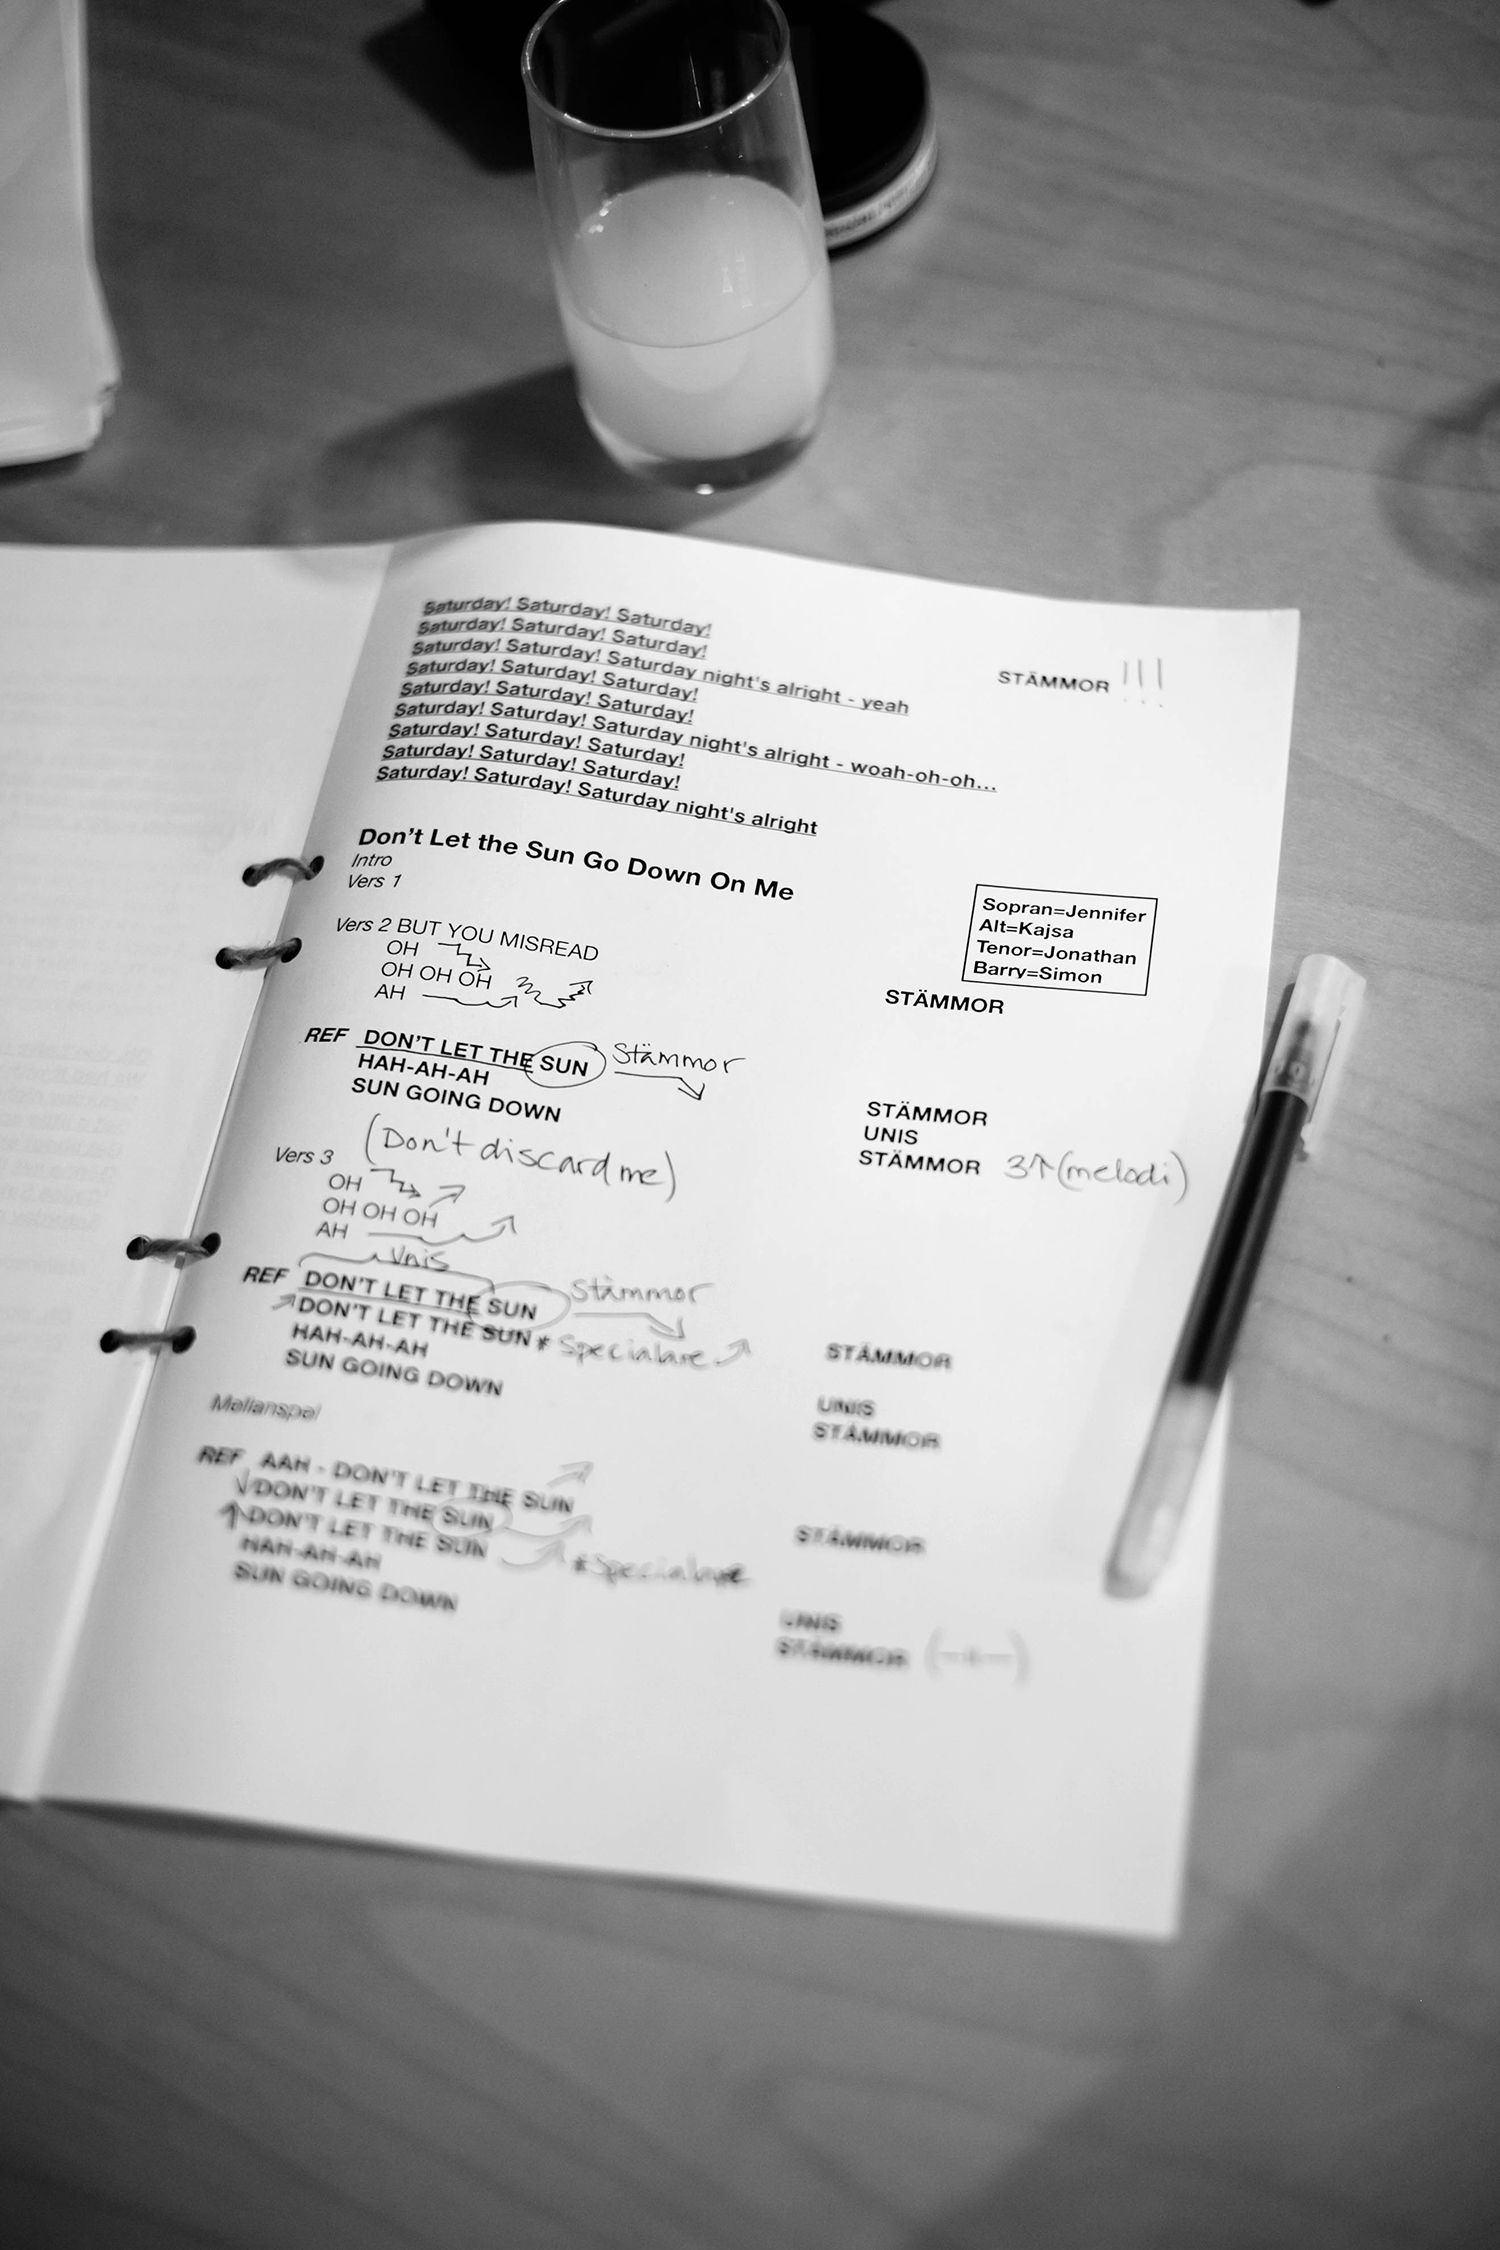 Saturday! Saturday! Saturday!
Saturday! Saturday! Saturday!
Saturday! Saturday! Saturday night's alright - yeah
STÄMMOR !!!
Saturday! Saturday! Saturday!
Saturday! Saturday! Saturday!
Saturday! Saturday! Saturday night's alright - woah-oh-oh...
Saturday! Saturday! Saturday!
Saturday! Saturday! Saturday!
Saturday! Saturday! Saturday night's alright
Don't Let the Sun Go Down On Me
Intro
Vers 1
Sopran=Jennifer
Alt=Kajsa
Tenor=Jonathan
Barry=Simon
Vers 2 BUT YOU MISREAD
OH
OH OH OH
AH
STÄMMOR
REF DON'T LET THE SUN Stämmor
STÄMMOR
HAH-AH-AH
UNIS
SUN GOING DOWN
STÄMMOR 3↑ (melodi)
(Don't discard me)
Vers 3
OH
OH OH OH
AH
Unis
REF DON'T LET THE SUN Stämmor
STÄMMOR
DON'T LET THE SUN * Specialare
HAH-AH-AH
UNIS
SUN GOING DOWN
STÄMMOR
Mellanspel
REF AAH - DON'T LET THE SUN
STÄMMOR
DON'T LET THE SUN
DON'T LET THE SUN *Specialare
HAH-AH-AH
UNIS
SUN GOING DOWN
STÄMMOR